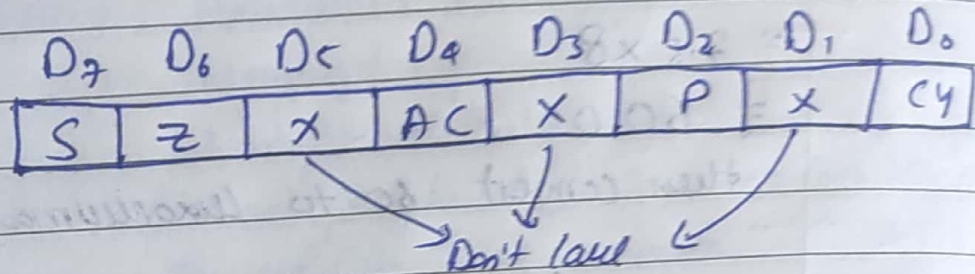 D7 D6 D5 D4 D3 D2 D1 D0
S Z X AC X P X CY
Don't care